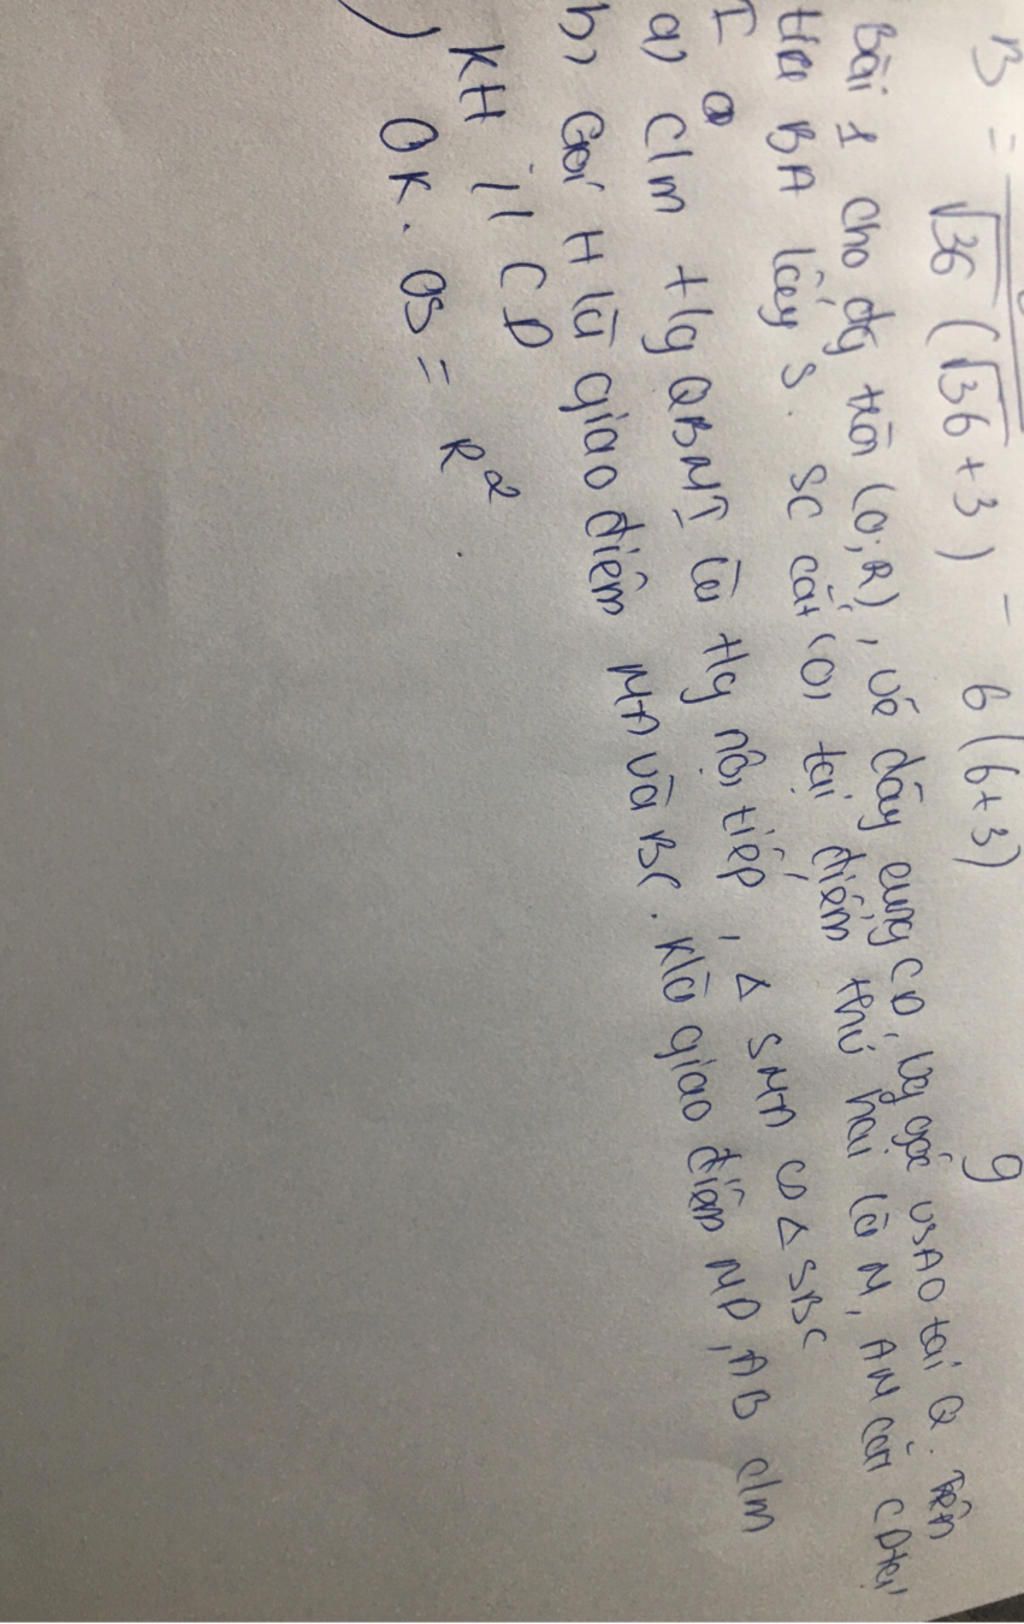 B = √36 (√36 + 3) - 6 (6+3) 9
Bài 1 cho đg tròn (O;R), vẽ dây cung CD vg góc vs AO tại Q. Trên
tia BA lấy S. SC cắt (O) tại điểm thứ hai là M, AM cắt CD tại
I
a) C/m t/g QBMI là t/g nội tiếp, Δ SMA ∽ Δ SBC
b) Gọi H là giao điểm MA và BC. K là giao điểm MD, AB c/m
KH // CD
) OK. OS = R²